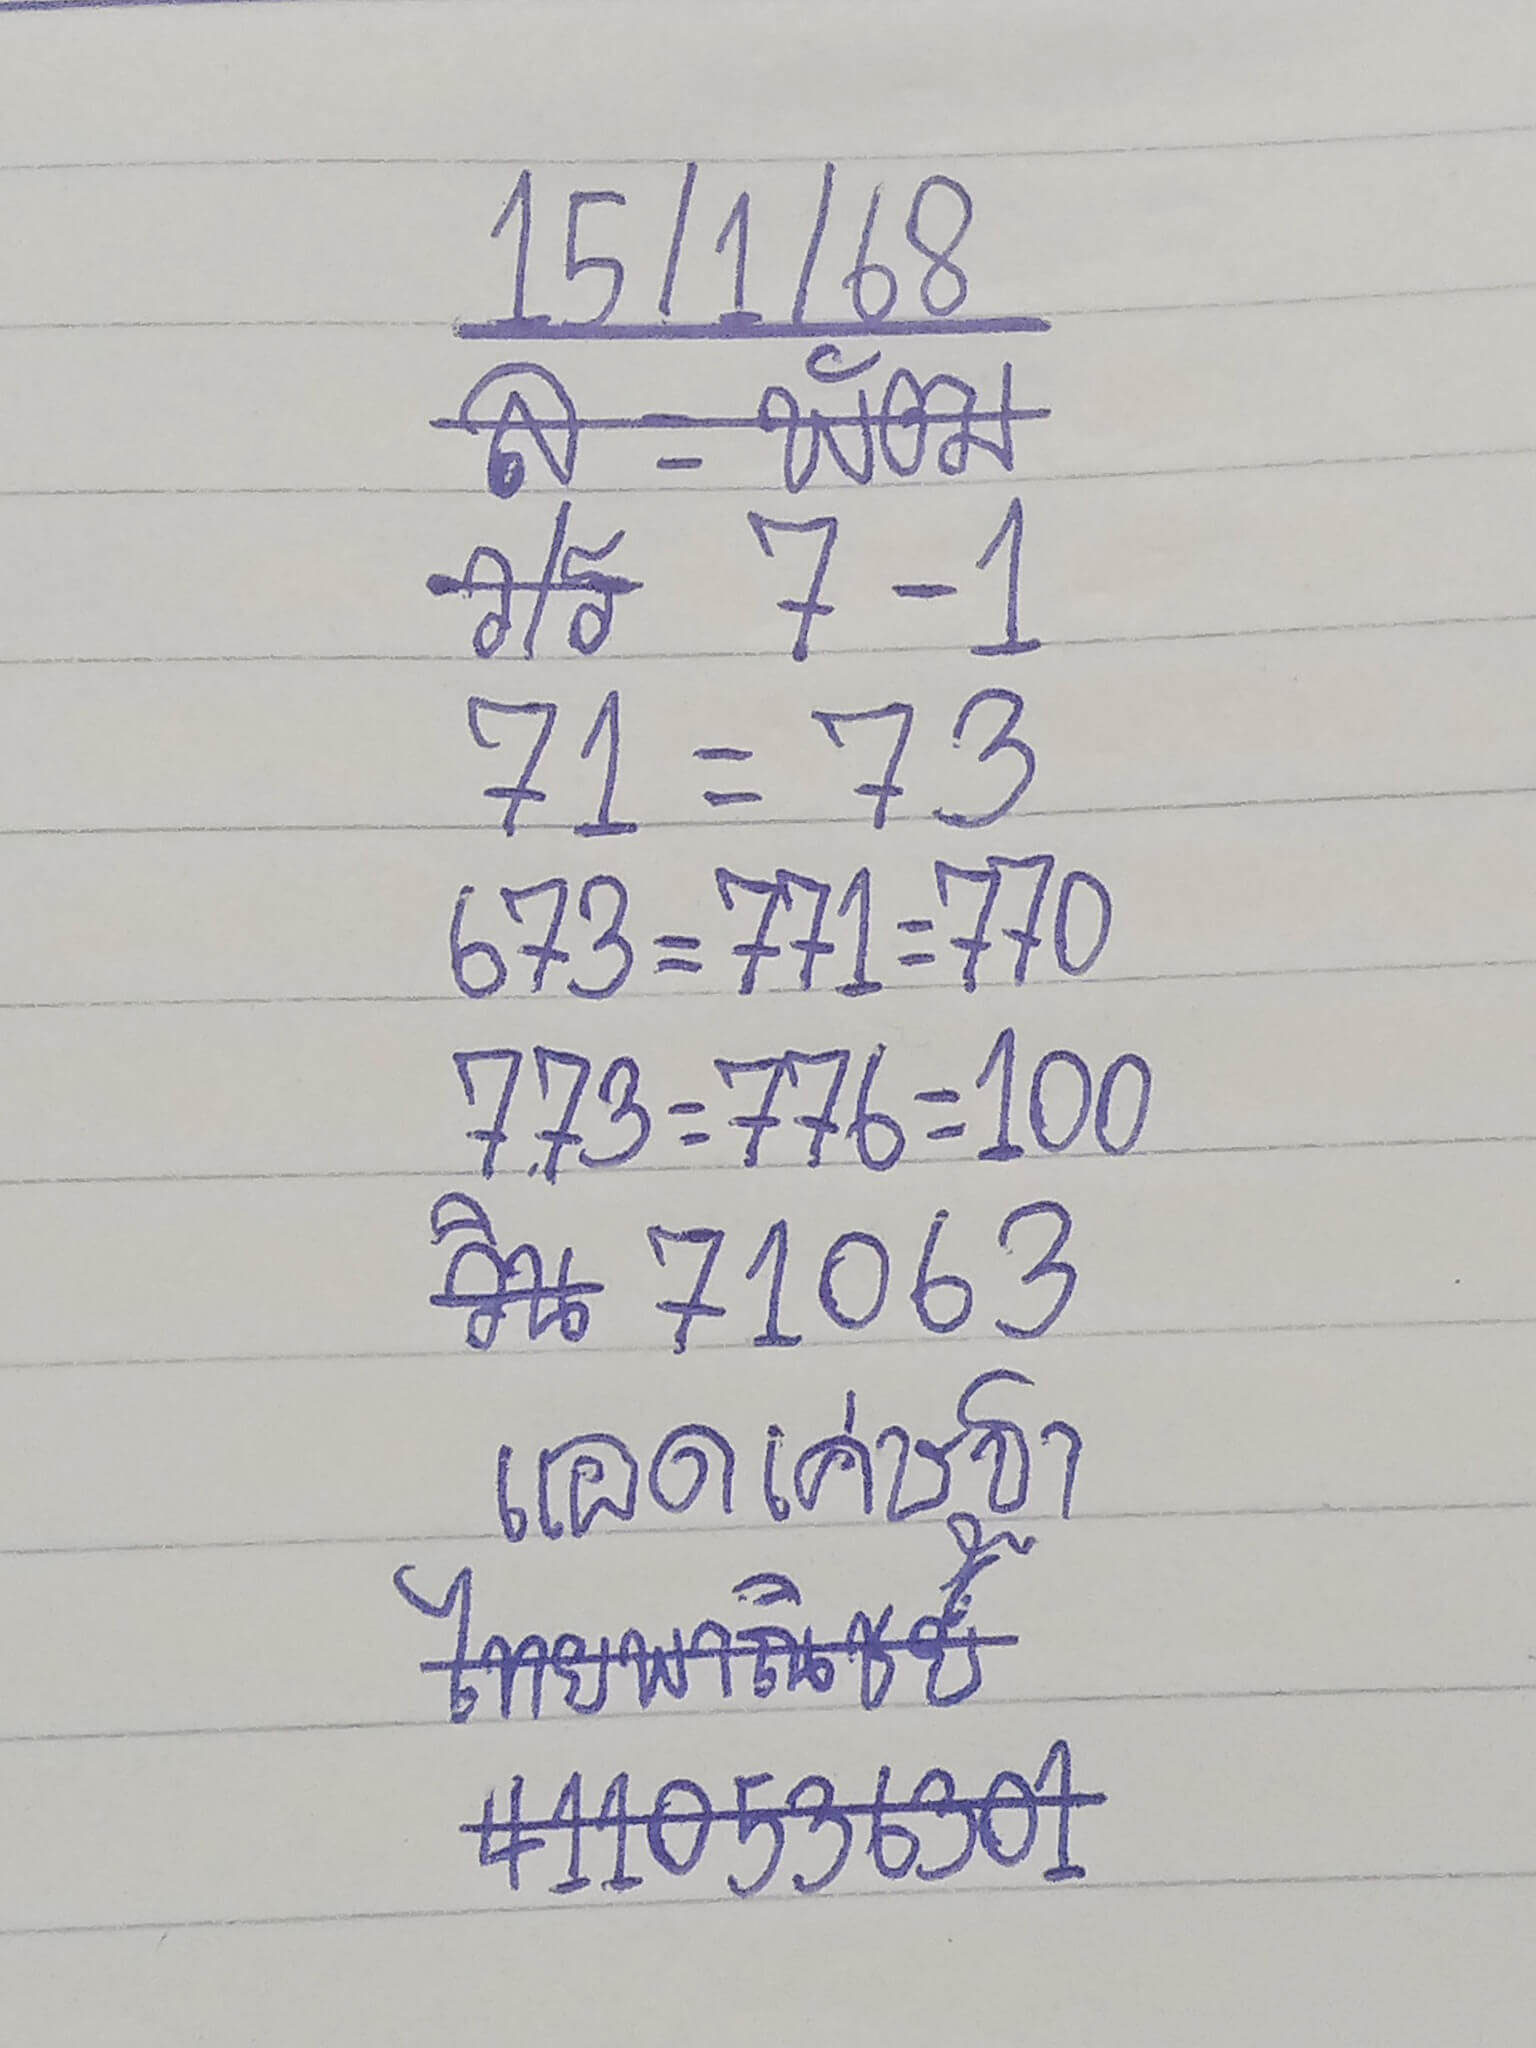 15/1/68
ล = พัวม
ว/ร 7-1
71 = 73
673=771=770
773=776=100
วิน 71063
แอดเค่ชชา
ไทยพาณิชย์
4110536301